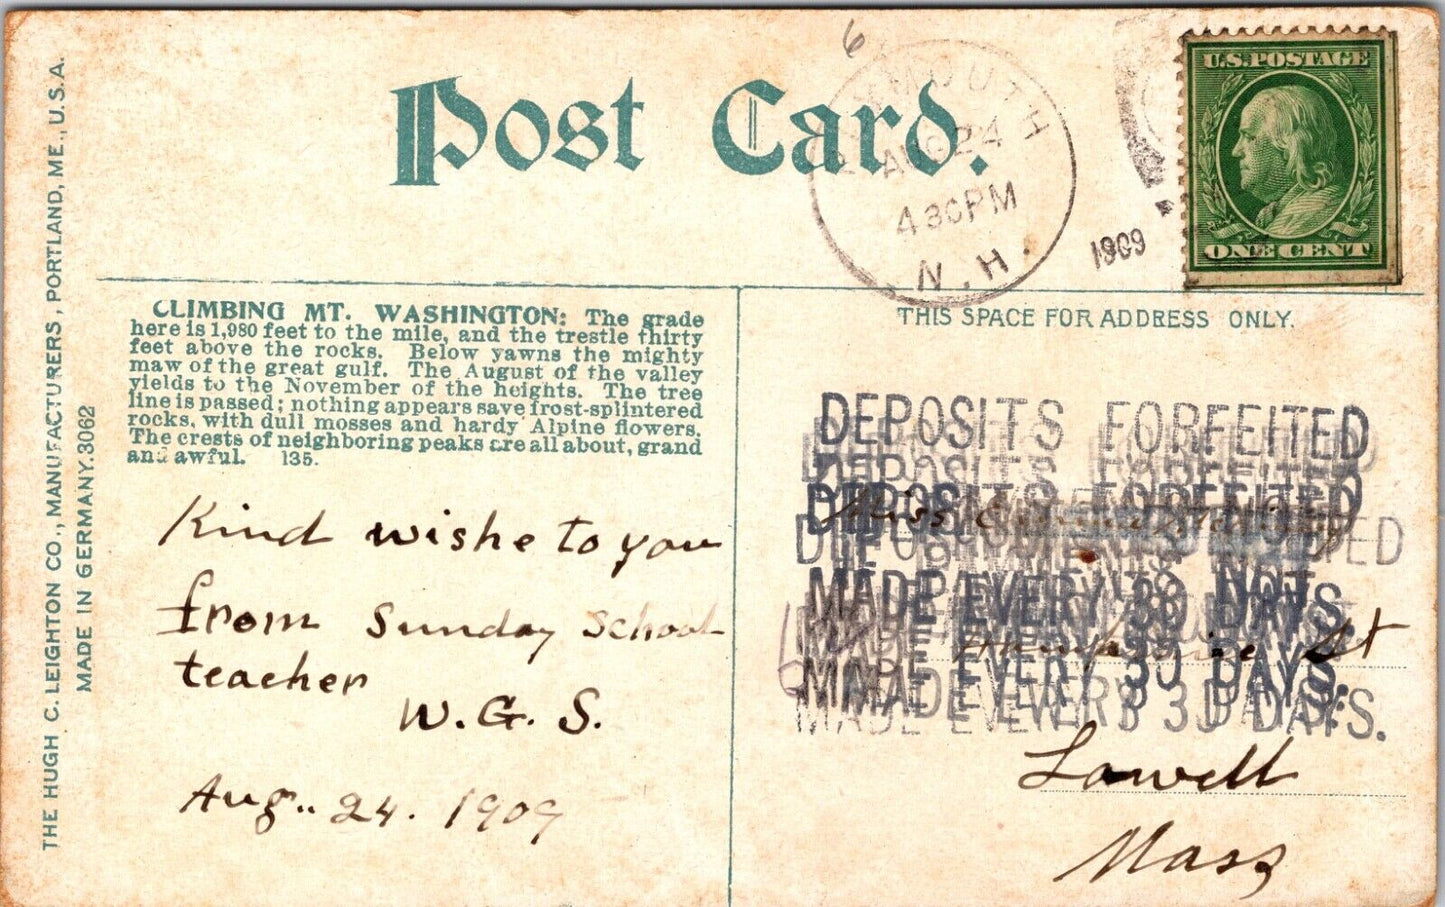 THE HUGH C. LEIGHTON CO., MANUFACTURERS, PORTLAND, ME., U.S.A.
MADE IN GERMANY. 3062
Post Card.
6
MOUTH
AUG 24
4 30 PM
N.H.
1909
U.S. POSTAGE
ONE CENT
CLIMBING MT. WASHINGTON: The grade
here is 1,980 feet to the mile, and the trestle thirty
feet above the rocks. Below yawns the mighty
maw of the great gulf. The August of the valley
yields to the November of the heights. The tree
line is passed; nothing appears save frost-splintered
rocks, with dull mosses and hardy Alpine flowers.
The crests of neighboring peaks are all about, grand
and awful. 135.
Kind wishe to you
from Sunday School
teacher
W.G.S.
Aug.. 24. 1909
THIS SPACE FOR ADDRESS ONLY.
DEPOSITS FORFEITED
DEPOSITS FORFEITED
DEPOSITS FORFEITED
Miss
MADE EVERY 30 DAYS.
St
MADE EVERY 30 DAYS.
MADE EVERY 30 DAYS.
Lowell
Mass